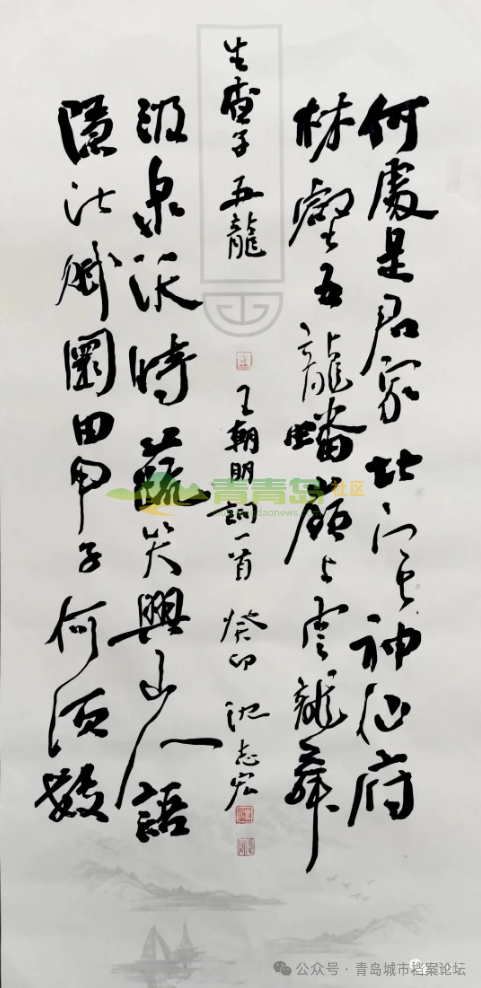 何處是君家此神仙府
林壑五龍蟠願与雲龍舞
生查子 五龍
王朝明詞一首 癸卯 沈志宏
汲泉沃時蔬笑與山人語
隱此賦園田甲子何須數
青青岛社区
daonews.com
公众号 · 青岛城市档案论坛